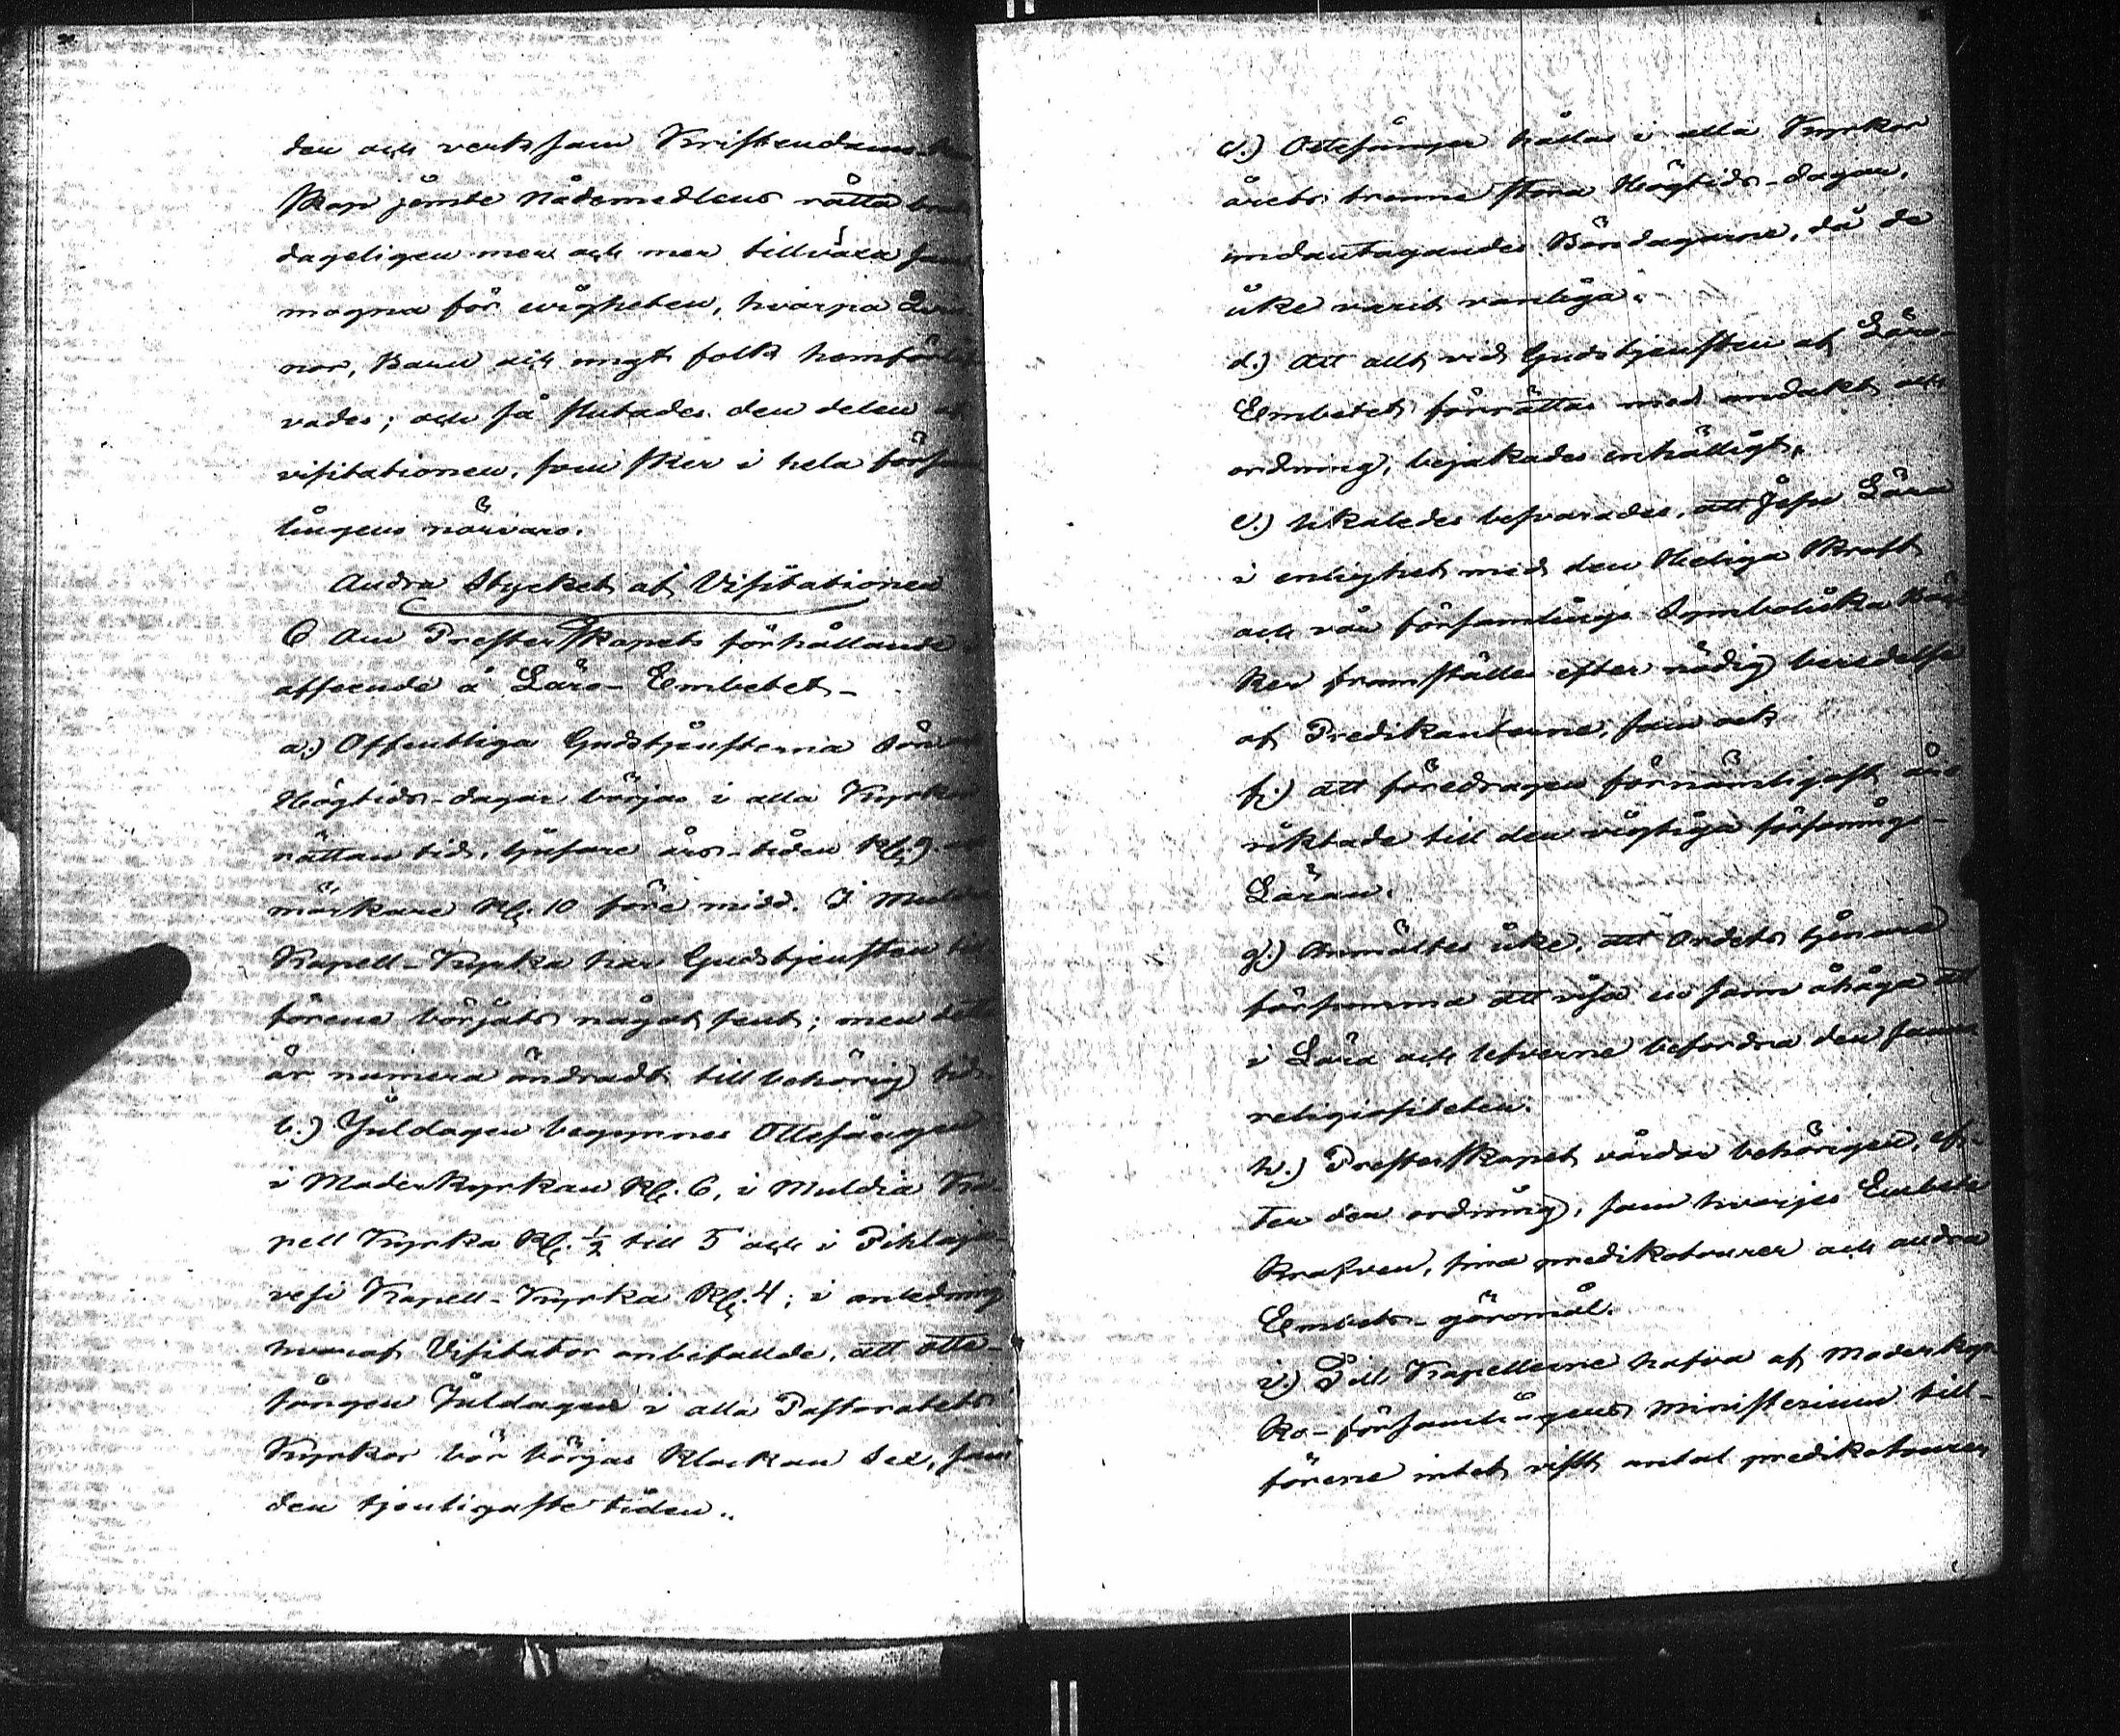 den och verksam Kristendoms
skap jemte Nådemedlens rätta
dageligen mer och mer tillväxa
mogna för evigheten, hvarpå
nor, Barn och ungt folk hemför
vades; och så slutades den delen af
visitationen, som sker i hela försam
lingens närvaro.
Andra Stycket af Visitationen
6 Om Presterskapets förhållande
afseende å Läro-Embetet-
a.) Offentliga Gudstjensterna Sön
Högtids-dagar börjas i alla Kyrkor
rättan tid, ljusare års-tiden Kl. 9.
mörkare Kl. 10 före midd. I Muldia
Kapell-Kyrka har Gudstjensten till
förene börjats något sent; men detta
är numera ändradt till behörig tid.
b.) Juldagen begynnes Ottesången
i Moderkyrkan Kl. 6, i Muldia Ka-
pell Kyrka Kl. ½ till 5 och i Pihlaja-
vesi Kapell-Kyrka Kl. 4; i anledning
hvaraf Visitator anbefallde, att otte-
sången Juldagen i alla Pastoratets
Kyrkor bör börjas Klockan sex, som
den tjenligaste tiden.
c.) Ottesånger hållas i alla Kyrkor
årets trenne stora Högtids-dagar,
undantagandes Böndagarne, då de
icke varit vanliga.
d.) Att allt vid Gudstjensten af Läro-
Embetet förrättas med andakt och
ordning, bejakades enhälligt.
e.) Likaledes besvarades, att Jesu Lära
i enlighet med den Heliga Skrift
och vår församlings Symboliska Böc-
ker framställes efter nödig beredelse
af Predikanterne, som ock
f.) att föredragen förnämligast äro
riktade till den vigtiga försonings-
Läran.
g.) Anmältes icke, att Ordets tjenare
försumma att visa en sann åhåga att
i Lära och lefverne befordra den sanna
religiositeten.
h.) Presterskapet vårdar behörigen, ef-
ter den ordning, som hvarjes Embete
krafven, sina predikoturer och andra
Embets-göromål.
i.) Till Kapellerne hafva af Moderkyr-
ko-församlingens Ministerium till-
förene intet visst antal predikoturer